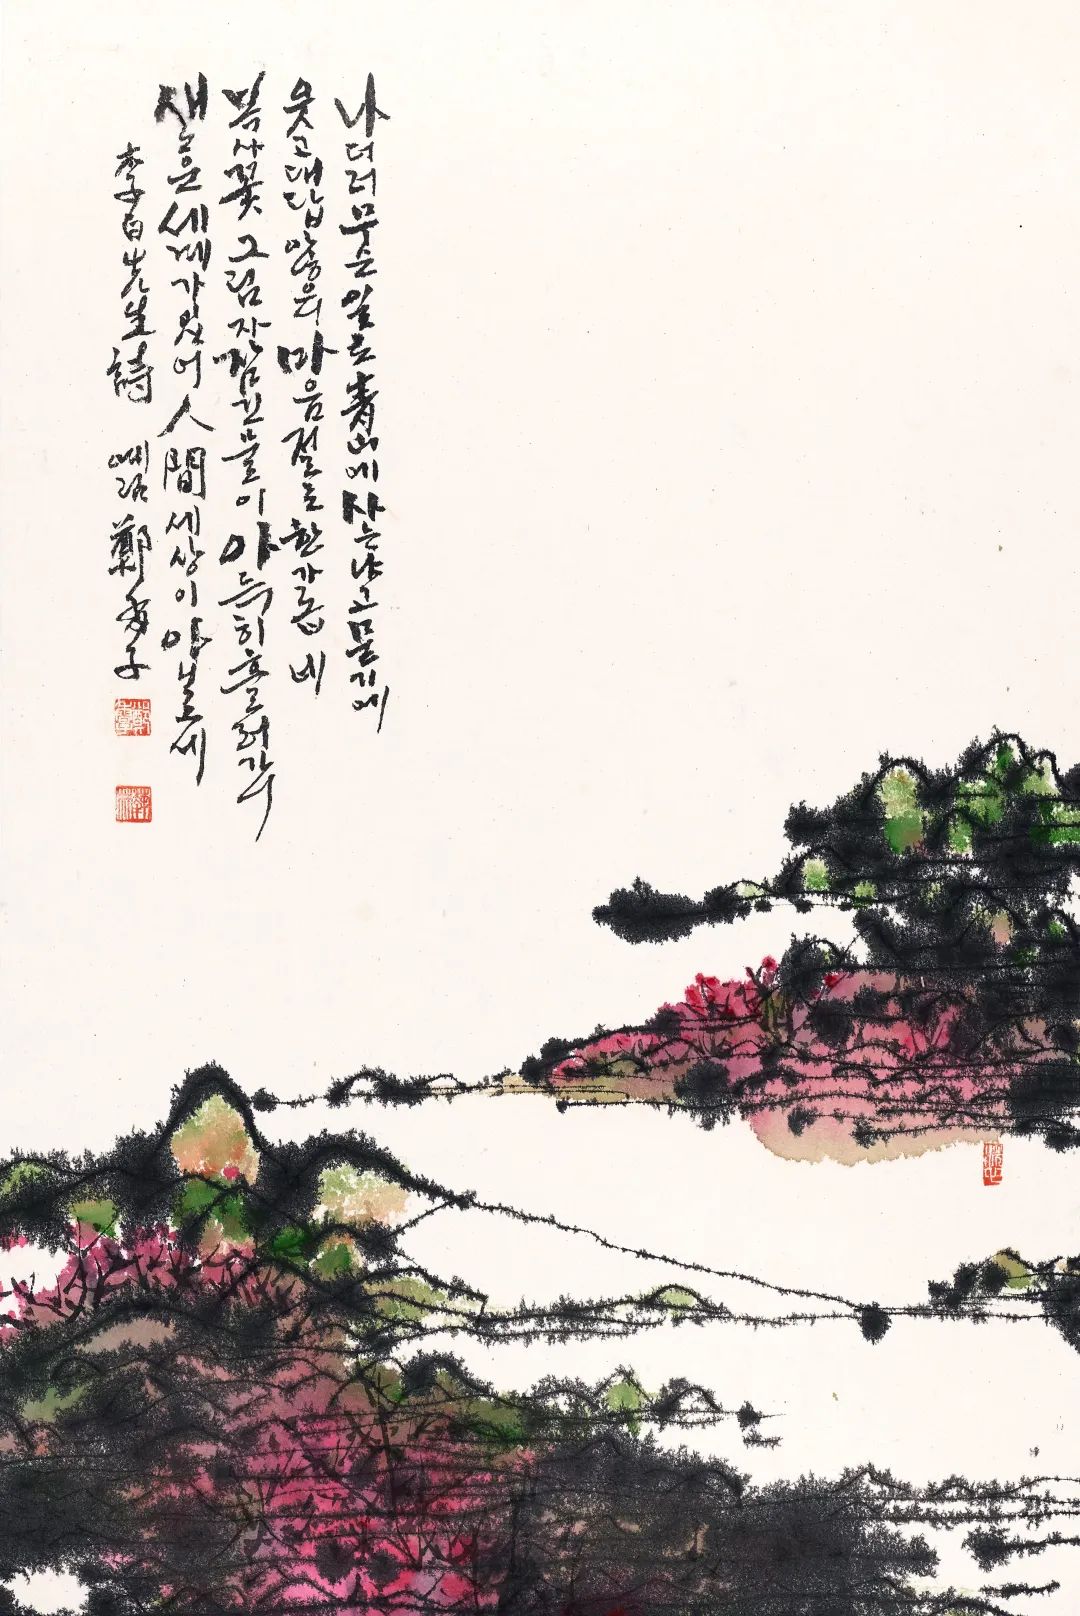 나더러무슨일로靑山에사는냐고묻기에
웃고대답않으니마음절로한가롭네
복사꽃그림자잠긴물이아득히흘러가
새로운세계가있어人間세상이아닐세
李白先生詩 鄭 子